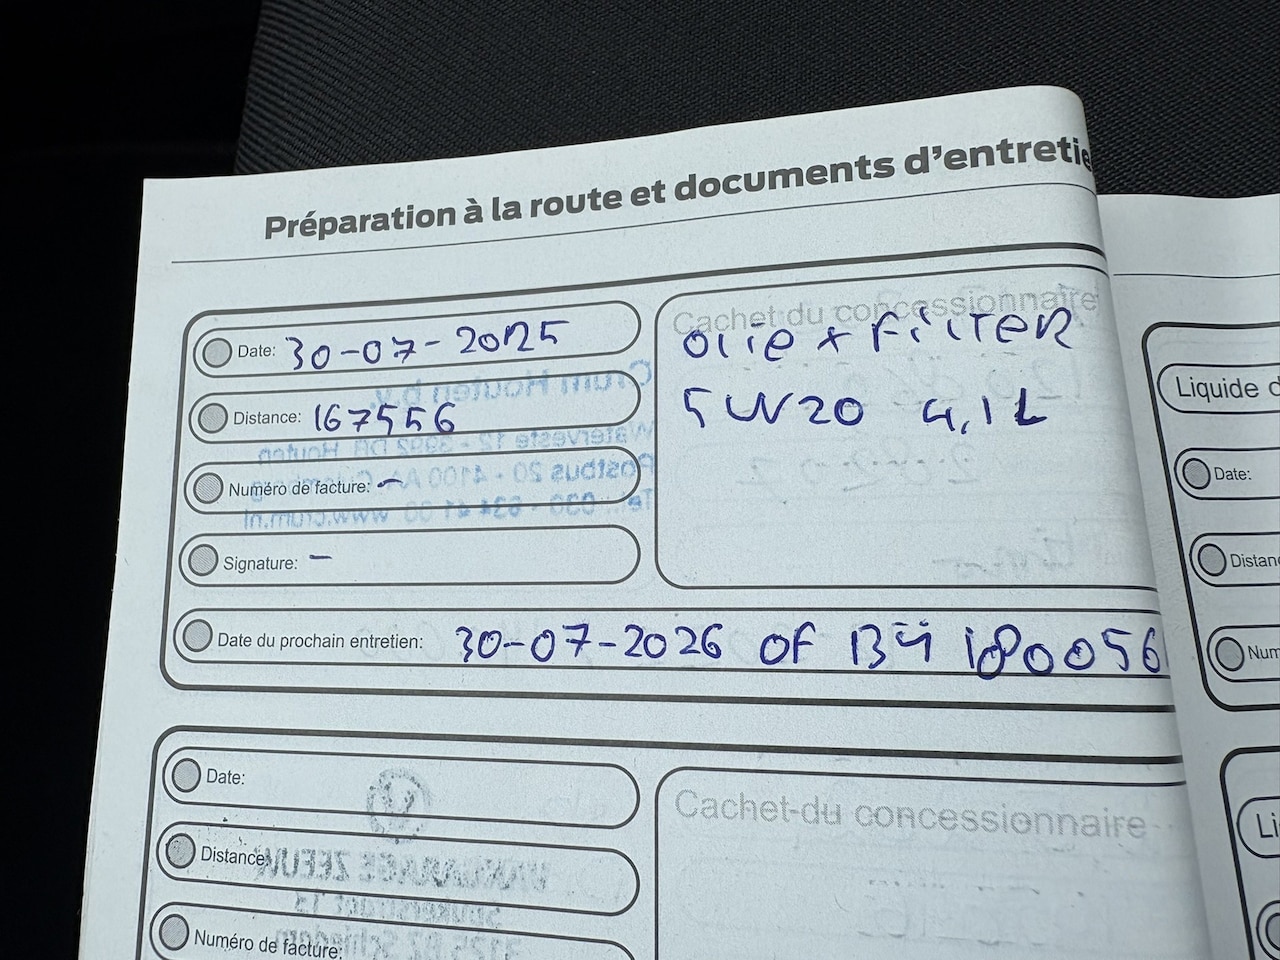 Préparation à la route et documents d'entretie
Date: 30-07-2025
Distance: 167556
Numéro de facture: —
Signature: —
Cachet du concessionnaire
Olie + Filter
5W20 4,1L
Date du prochain entretien: 30-07-2026 OF BY 180056
Date:
Distance
Numéro de facture:
Cachet du concessionnaire
Liquide d
Date:
Distan
Num
Li